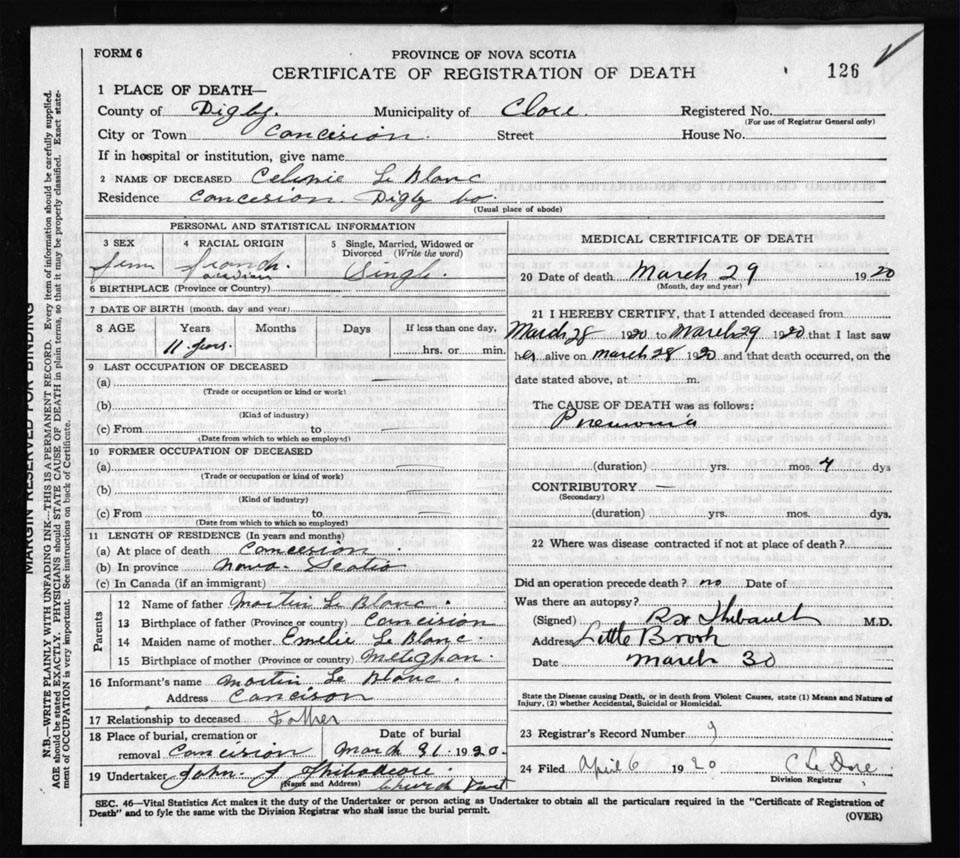 FORM 6
PROVINCE OF NOVA SCOTIA
CERTIFICATE OF REGISTRATION OF DEATH
126
1 PLACE OF DEATH—
County of Digby. Municipality of Clare Registered No.
(For use of Registrar General only)
City or Town Concision. Street House No.
If in hospital or institution, give name
2 NAME OF DECEASED Celinie Le Blanc
Residence Concesion. Digby Co.
(Usual place of abode)
PERSONAL AND STATISTICAL INFORMATION
3 SEX 4 RACIAL ORIGIN 5 Single, Married, Widowed or Divorced (Write the word)
fem french. acadian Single.
6 BIRTHPLACE (Province or Country)
7 DATE OF BIRTH (month, day and year)
8 AGE Years Months Days If less than one day,
11 years. hrs. or min.
9 LAST OCCUPATION OF DECEASED
(a) —
(Trade or occupation or kind of work)
(b)
(Kind of industry)
(c) From to —
(Date from which to which so employed)
10 FORMER OCCUPATION OF DECEASED
(a) —
(Trade or occupation or kind of work)
(b) —
(Kind of industry)
(c) From to —
(Date from which to which so employed)
11 LENGTH OF RESIDENCE (In years and months)
(a) At place of death Concesion.
(b) In province Nova-Scotia
(c) In Canada (if an immigrant)
Parents
12 Name of father Martin Le Blanc.
13 Birthplace of father (Province or country) Concision
14 Maiden name of mother. Emelie Le Blanc.
15 Birthplace of mother (Province or country) Meteghan.
16 Informant's name Martin Le Blanc.
Address Concison
17 Relationship to deceased Father
18 Place of burial, cremation or Date of burial
removal Concision March 31. 1920.
19 Undertaker John. J. Thibodeau
(Name and Address) Church Point
MEDICAL CERTIFICATE OF DEATH
20 Date of death March 29 1920
(Month, day and year)
21 I HEREBY CERTIFY, that I attended deceased from
March 28 1920 to March 29 1920 that I last saw
her alive on March 28 1920 and that death occurred, on the
date stated above, at m.
The CAUSE OF DEATH was as follows:
Pnemonia
(duration) yrs. mos. 4 dys
CONTRIBUTORY —
(Secondary)
(duration) yrs. mos. dys.
22 Where was disease contracted if not at place of death?
Did an operation precede death? no Date of
Was there an autopsy?
(Signed) Thibault M.D.
Address Little Brook
Date March 30
State the Disease causing Death, or in death from Violent Causes, state (1) Means and Nature of
Injury, (2) whether Accidental, Suicidal or Homicidal.
23 Registrar's Record Number 9
24 Filed April 6 1920 Division Registrar
SEC. 46—Vital Statistics Act makes it the duty of the Undertaker or person acting as Undertaker to obtain all the particulars required in the "Certificate of Registration of
Death" and to fyle the same with the Division Registrar who shall issue the burial permit.
(OVER)
MARGIN RESERVED FOR BINDING
N.B.—WRITE PLAINLY WITH UNFADING INK—THIS IS A PERMANENT RECORD. Every item of information should be carefully supplied.
AGE should be stated EXACTLY. PHYSICIANS should STATE CAUSE OF DEATH in plain terms, so that it may be properly classified. Exact state-
ment of OCCUPATION is very important. See instructions on back of Certificate.